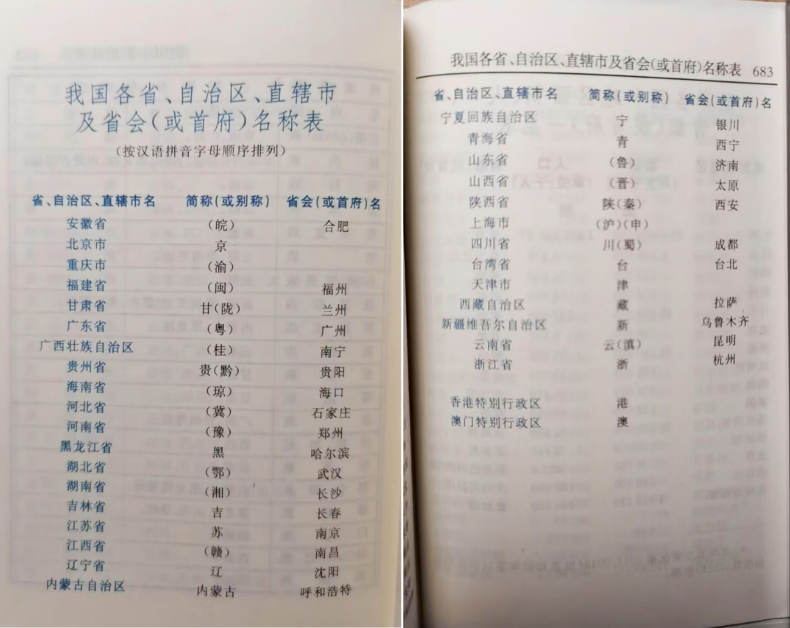 我国各省、自治区、直辖市
及省会(或首府)名称表
(按汉语拼音字母顺序排列)
省、自治区、直辖市名 简称(或别称) 省会(或首府)名
安徽省 (皖) 合肥
北京市 京
重庆市 (渝)
福建省 (闽) 福州
甘肃省 甘(陇) 兰州
广东省 (粤) 广州
广西壮族自治区 (桂) 南宁
贵州省 贵(黔) 贵阳
海南省 (琼) 海口
河北省 (冀) 石家庄
河南省 (豫) 郑州
黑龙江省 黑 哈尔滨
湖北省 (鄂) 武汉
湖南省 (湘) 长沙
吉林省 吉 长春
江苏省 苏 南京
江西省 (赣) 南昌
辽宁省 辽 沈阳
内蒙古自治区 内蒙古 呼和浩特
我国各省、自治区、直辖市及省会(或首府)名称表 683
省、自治区、直辖市名 简称(或别称) 省会(或首府)名
宁夏回族自治区 宁 银川
青海省 青 西宁
山东省 (鲁) 济南
山西省 (晋) 太原
陕西省 陕(秦) 西安
上海市 (沪)(申)
四川省 川(蜀) 成都
台湾省 台 台北
天津市 津
西藏自治区 藏 拉萨
新疆维吾尔自治区 新 乌鲁木齐
云南省 云(滇) 昆明
浙江省 浙 杭州
香港特别行政区 港
澳门特别行政区 澳